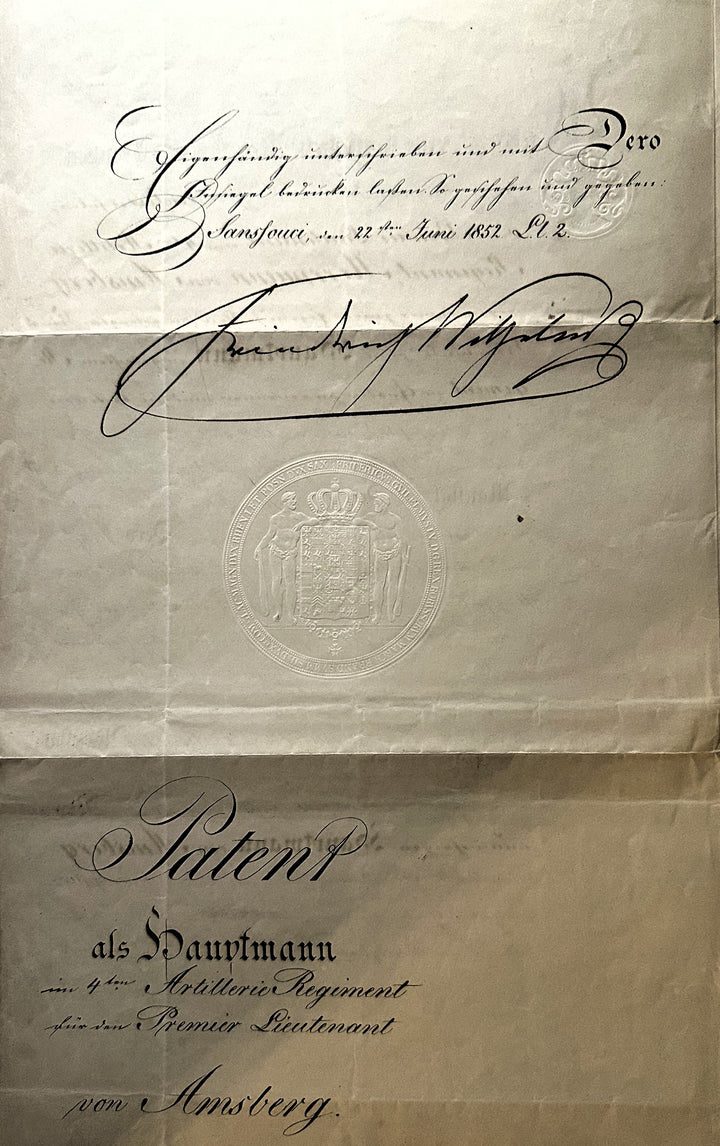 Eigenhändig unterschrieben und mit Dero
Insiegel bedrucken lassen. So geschehen und gegeben:
Sanssouci, den 22sten Juni 1852
Friedrich Wilhelm
Patent
als Hauptmann
im 4ten Artillerie Regiment
für den Premier Lieutenant
von Amsberg.